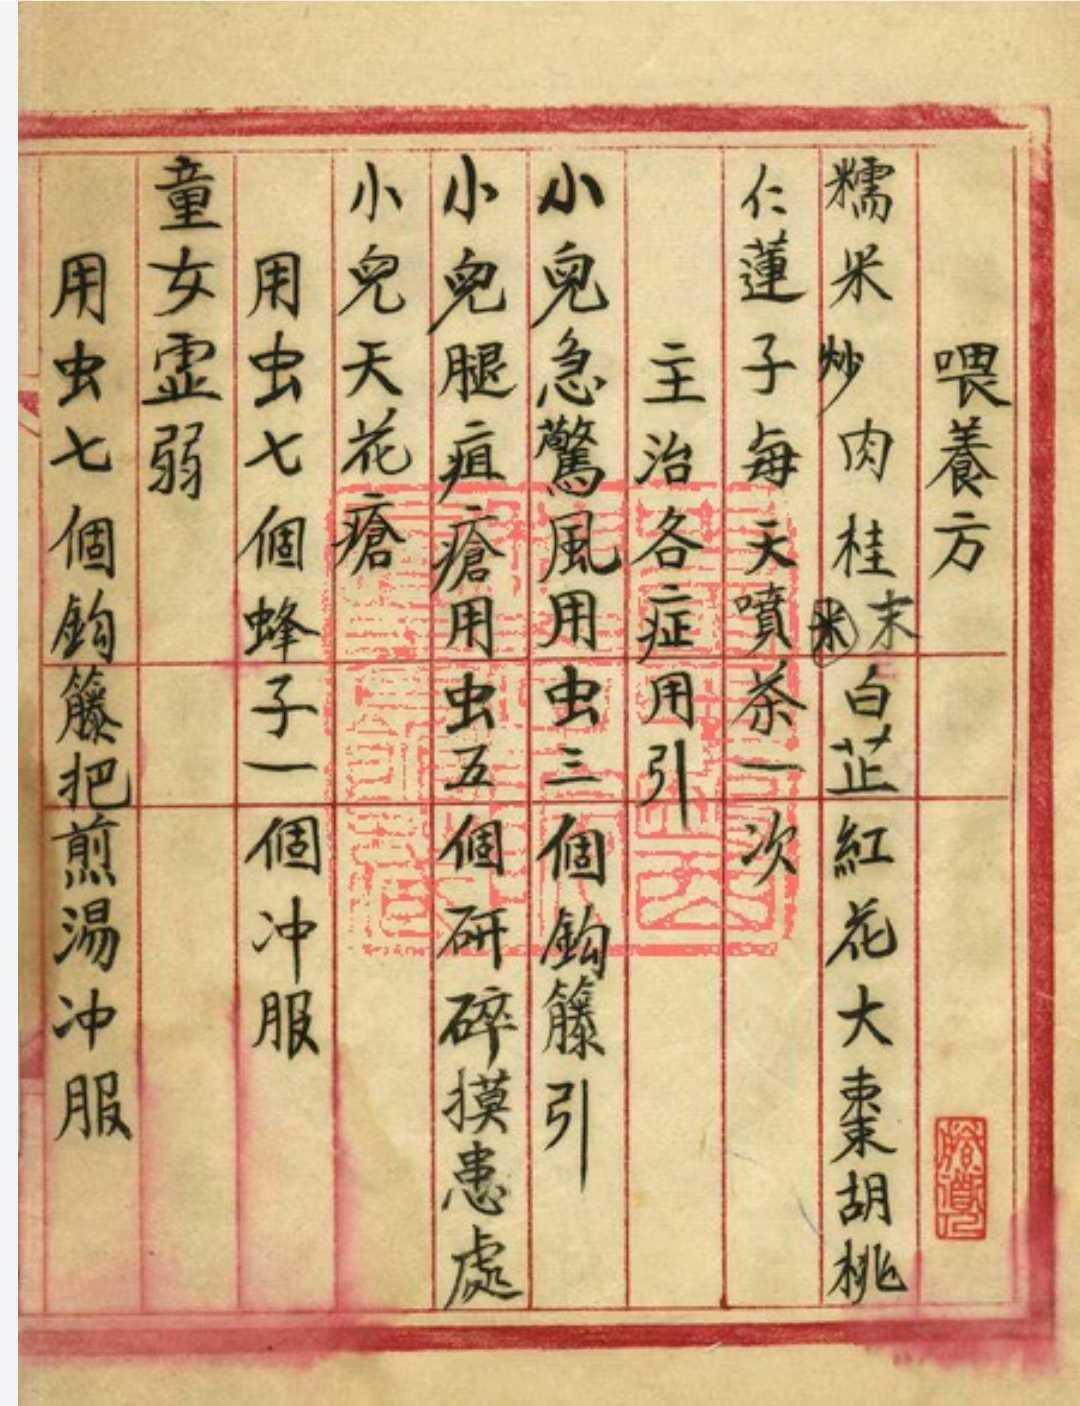 喂養方
糯米炒肉桂末米白芷紅花大棗胡桃
仁蓮子每天噴茶一次
主治各症用引
小兒急驚風用虫三個鈎籐引
小兒腿疽瘡用虫五個研碎摸患處
小兒天花瘡
用虫七個蜂子一個冲服
童女虛弱
用虫七個鈎籐把煎湯冲服